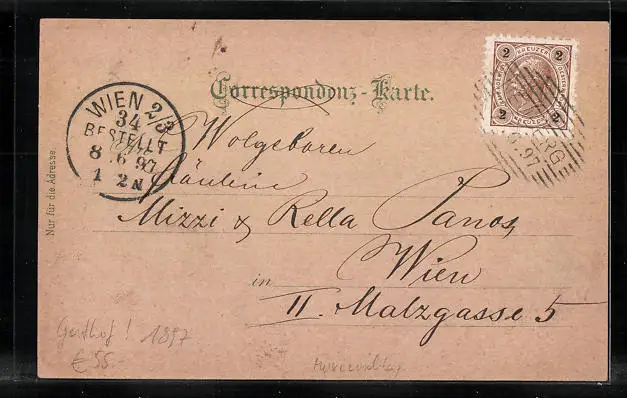 Correspondenz-Karte.
2 KREUZER 2
2 2
WIEN 2/3
34
BESTELLT
8 6 97
1 2 N
ERG
97
Wolgeboren
Fräulein
Mizzi & Rella Janos,
in Wien
II. Malzgasse 5
Nur für die Adresse.
Gasthof! 1897
€ 55.-